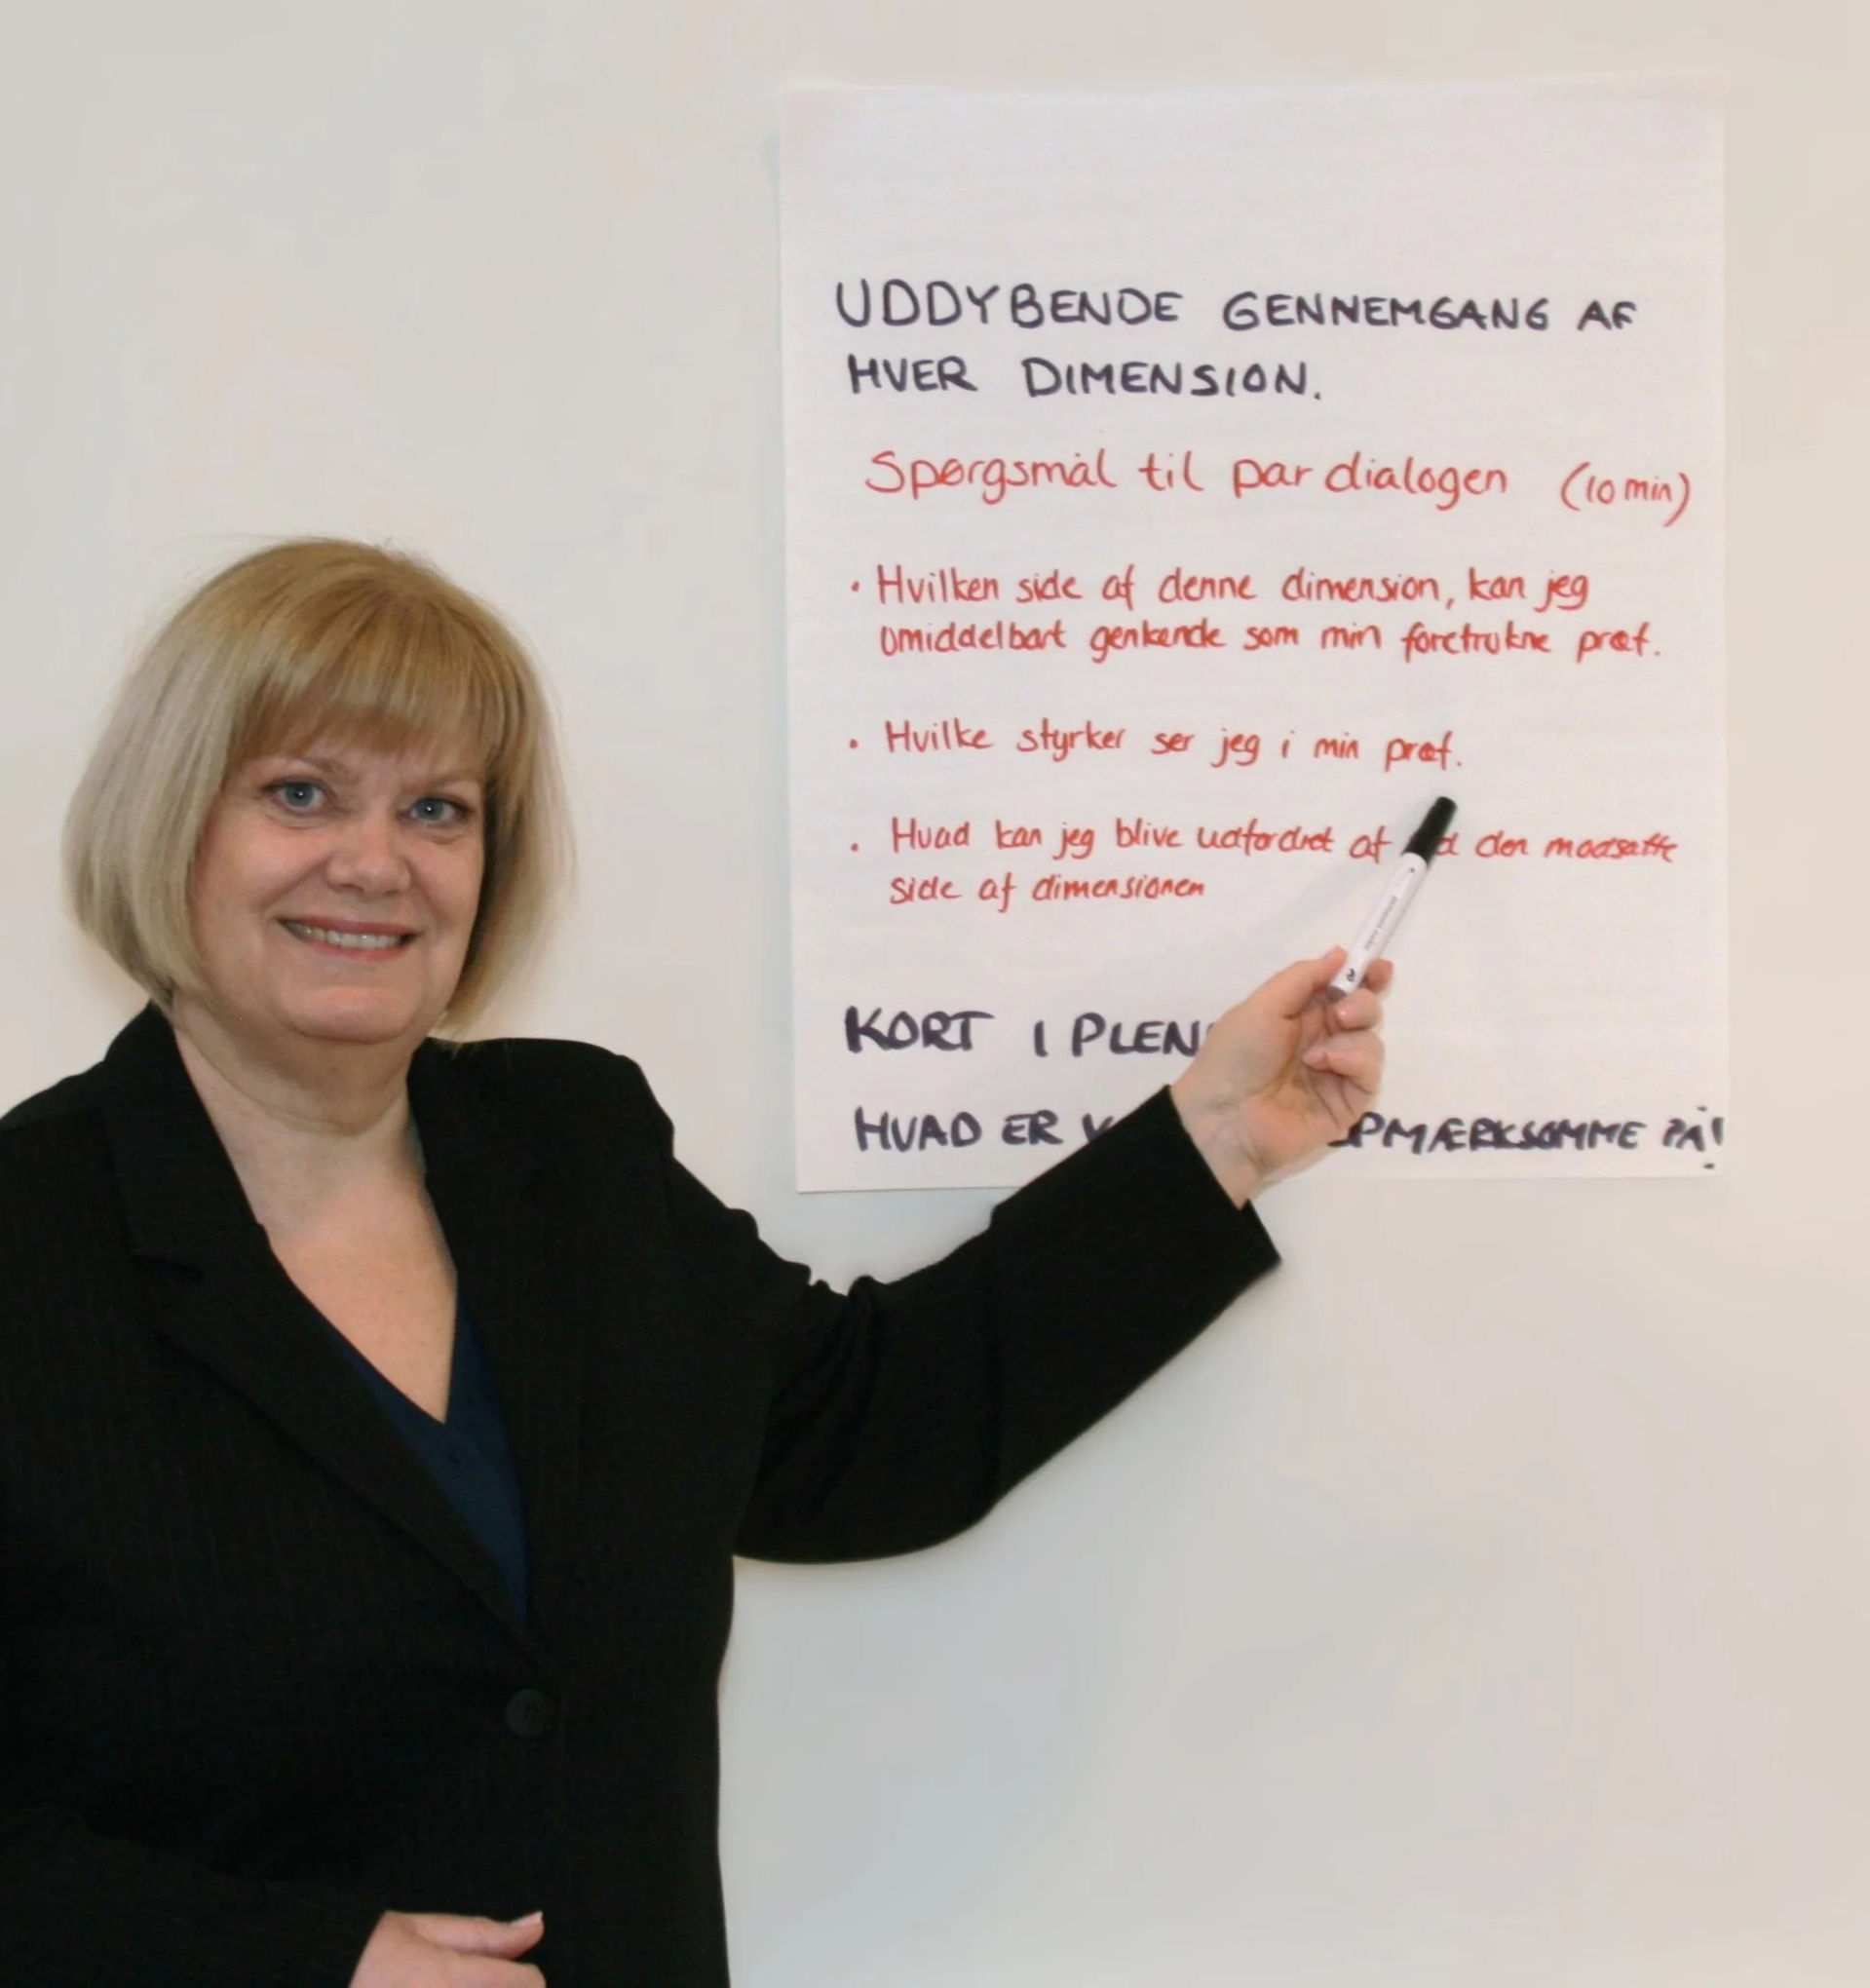 UDDYBENDE GENNEMGANG AF
HVER DIMENSION.
Spørgsmål til par dialogen (10 min)
• Hvilken side af denne dimension, kan jeg
umiddelbart genkende som min foretrukne præf.
• Hvilke styrker ser jeg i min præf.
• Hvad kan jeg blive udfordret af den modsatte
side af dimensionen
KORT I
HVAD ER PÅ!